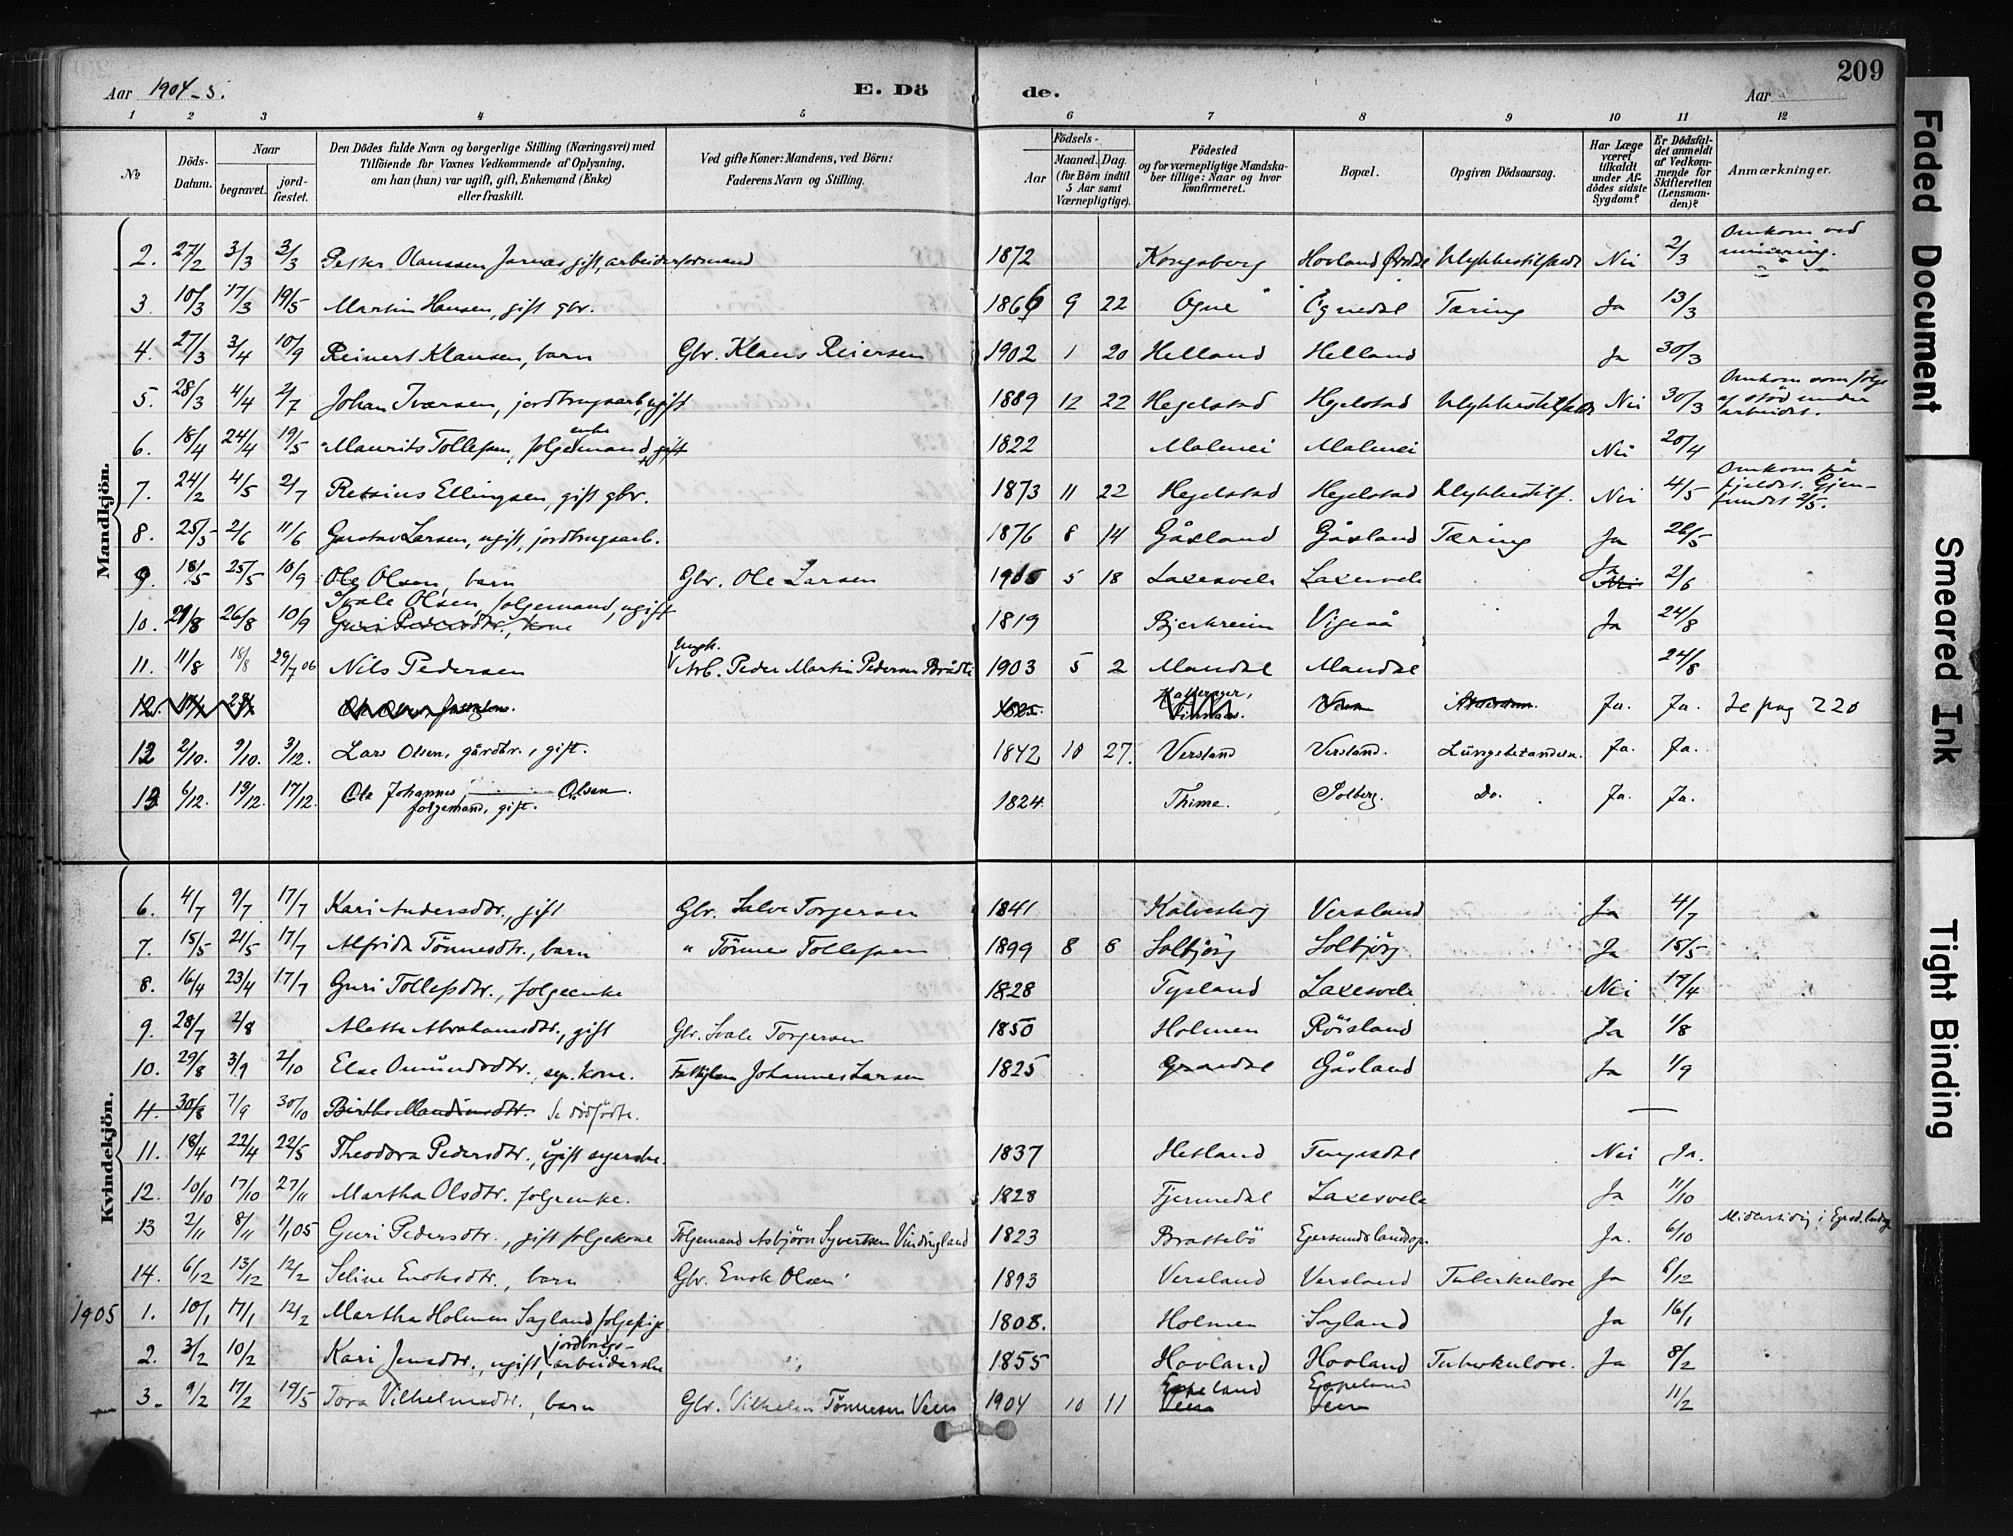 Aar 1904-5.
E. Dö de.
Aar
209
1 2 3 4 5 6 7 8 9 10 11 12
No
Döds-Datum.
Naar
begravet.
jord-fæstet.
Den Dödes fulde Navn og borgerlige Stilling (Næringsvei) med
Tilföiende for Voxnes Vedkommende af Oplysning,
om han (hun) var ugift, gift, Enkemand (Enke)
eller fraskilt.
Ved gifte Koner: Mandens, ved Börn:
Faderens Navn og Stilling.
Födsels-
Aar
Maaned. Dag.
(for Börn indtil
5 Aar samt
Værnepligtige).
Födested
og for værnepligtige Mandska-
ber tillige: Naar og hvor
konfirmeret.
Bopæl.
Opgiven Dödsaarsag.
Har Læge
været
tilkaldt
under Af-
dödes sidste
Sygdom?
Er Dödsfal-
det anmeldt
af Vedkom-
mende for
Skifteretten
(Lensman-
den)?
Anmærkninger.
Mandkjön.
2. 27/2 3/3 3/3 Petter Olaussen Jarnæs gift, arbeiderformand 1872 Kongsberg Hovland Ørsdal Ulykkestilfælde Nei 2/3 Omkom ved minering.
3. 10/3 17/3 19/5 Martin Hansen, gift gbr. 1866 9 22 Ogne Egnedal Tæring Ja 13/3
4. 27/3 3/4 10/9 Reinert Klausen, barn Gbr. Klaus Reiersen 1902 1 20 Helland Helland Ja 30/3
5. 28/3 4/4 2/7 Johan Iversen, jordbrugsarb., ugift 1889 12 22 Hegelstad Hegelstad Ulykkestilfælde Nei 30/3 Omkom som følge af stød under arbeidet.
6. 18/4 24/4 19/5 Maurits Tollefsen, folgeenkemand, gift 1822 Malmei Malmei Nei 20/4
7. 24/2 4/5 2/7 Retsius Ellingsen, gift gbr. 1873 11 22 Hegelstad Hegelstad Ulykkestilf. Nei 4/5 Omkom på fjeldet. Gjenfundet 2/5.
8. 25/5 2/6 11/6 Gustav Larsen, ugift, jordbrugsarb. 1876 8 14 Gåsland Gåsland Tæring Ja 26/5
9. 18/5 25/5 10/9 Ole Olsen, barn Gbr. Ole Larsen 1905 5 18 Laxesvele Laxesvele Ja 2/6
10. 21/8 26/8 10/9 Svale Olsen, folgemand, ugift Guri Pedersdtr., kone 1819 Bjerkreim Vigeså Ja 24/8
11. 11/8 18/8 29/7 06 Nils Pedersen Ungk. Arb. Peder Martin Pedersen 1903 5 2 Mandal Mandal 24/8
12. Ja. Ja. Se pag 220
12 2/10. 9/10. 3/12. Lars Olsen, gårdbr., gift. 1842 10 27. Versland Versland. Lungebetændelse. Ja. Ja.
13. 6/12. 19/12. 17/12. Ole Johannes Olsen folgemand, gift. 1824. Thime. Solberg. Do. Ja. Ja.
Kvindekjön.
6. 4/7 9/7 17/7 Kari Andersdtr., gift Gbr. Salve Torgersen 1841 Versland Ja 4/7
7. 15/5 21/5 17/7 Alfrida Tönnesdtr., barn " Tönnes Tollefsen 1899 8 6 Solbjörg Solbjörg Ja 15/5
8. 16/4 23/4 17/7 Guri Tollefsdtr., folgeenke 1828 Tysland Laxesvele Nei 17/4
9. 28/7 2/8 Alette Abrahamsdtr., gift Gbr. Svale Torgersen 1850 Holmen Röisland Ja 1/8
10. 29/8 3/9 2/10 Else Omundsdtr., sep. kone. Fattiglem Johannes Larsen 1825 Grøndal Gåsland Ja 1/9
4. 30/8 7/9 30/10 Berthe Mandiusdtr. Se dödfödte. —
11. 18/4 22/4 22/5 Theodora Pedersdtr., ugift syerske. 1837 Hetland Tengesdal Nei Ja.
12. 10/10 17/10 27/11 Martha Olsdtr. folgeenke. 1828 Laxesvele Ja 11/10
13 2/11 8/11 1/1 05 Guri Pedersdtr., gift folgekone Folgemand Asbjörn Syvertsen Vindingland 1823 Brattebö Egersunds landsogn Ja. 6/10 Midlertidig i Egersd. landsogn
14. 6/12 13/12 12/2 Seline Enoksdtr., barn Gbr. Enok Olsen 1893 Versland Versland Tuberkulose Ja 6/12
1905 1. 10/1 17/1 12/2 Martha Holmen Sagland folgepige. 1808. Holmen Sagland Ja 16/1
2. 3/2 10/2 Kari Jensdtr., ugift, jordbrugs-arbeiderske 1855 Hovland Hovland Tuberkulose. Ja 8/2
3. 9/2 17/2 19/5 Tora Vilhelmsdtr., barn Gbr. Vilhelm Tönnesen Veen 1904 10 11 Espeland Veen Espeland Veen 11/2
Faded Document
Smeared Ink
Tight Binding